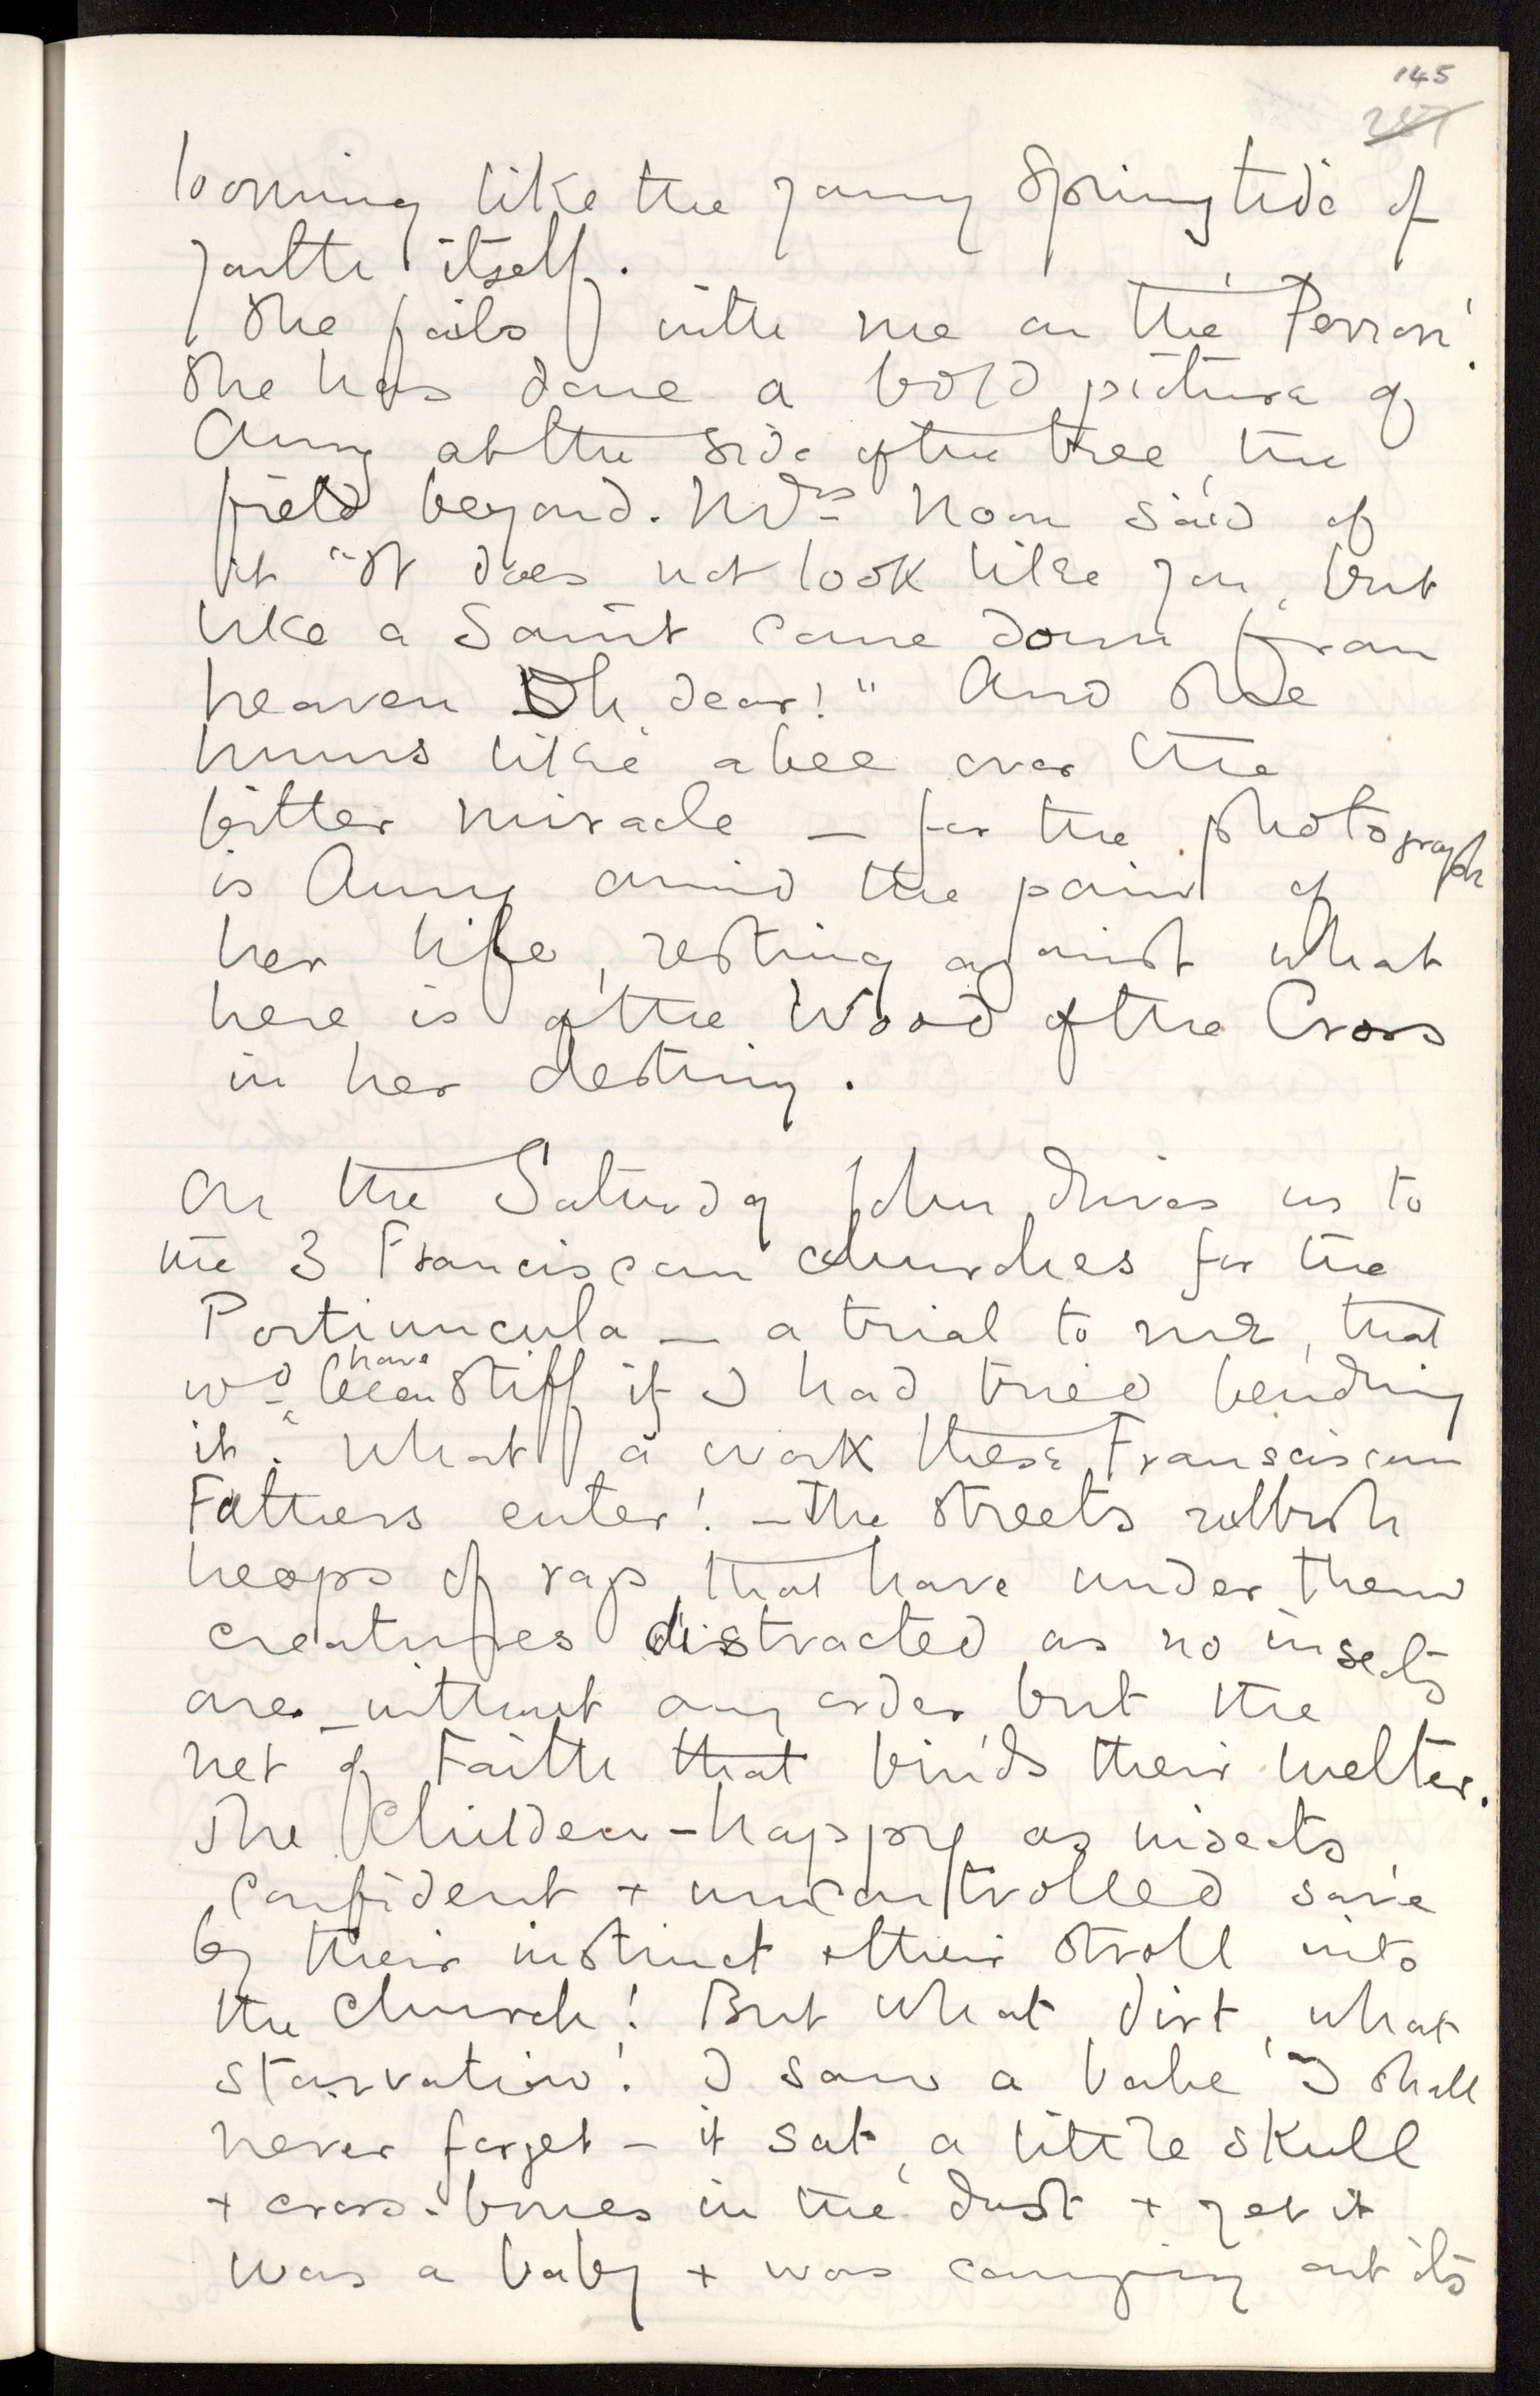 145
looming like the young Springtide of
youth itself.
She fails with me on the 'Perron'.
She has done a bold picture of
Amy at the side of the tree, the
field beyond. Mdes Noon said of
it "It does not look like you, but
like a Saint come down from
heaven Oh dear!" And she
hums like a bee over the
bitter miracle — for the photograph
is Amy amid the pain of
her life, resting against what
here is of the Wood of the Cross
in her destiny.
On the Saturday John drives us to
the 3 Franciscan churches for the
Portiuncula — a trial to me, that
wd have been stiff if I had tried bending
it. What a work these Fransciscan
Fathers enter! — The streets rubbish
heaps of rags that have under them
creatures distracted as no insects
are — without any order but the
net of Faith that binds their welter.
The Children — happy as insects,
confident + uncontrolled save
by their instinct + their stroll into
the church! But what dirt, what
starvation! I saw a babe I shall
never forget — it sat, a little skull
+ cross-bones in the dust + yet it
was a baby + was carrying out its